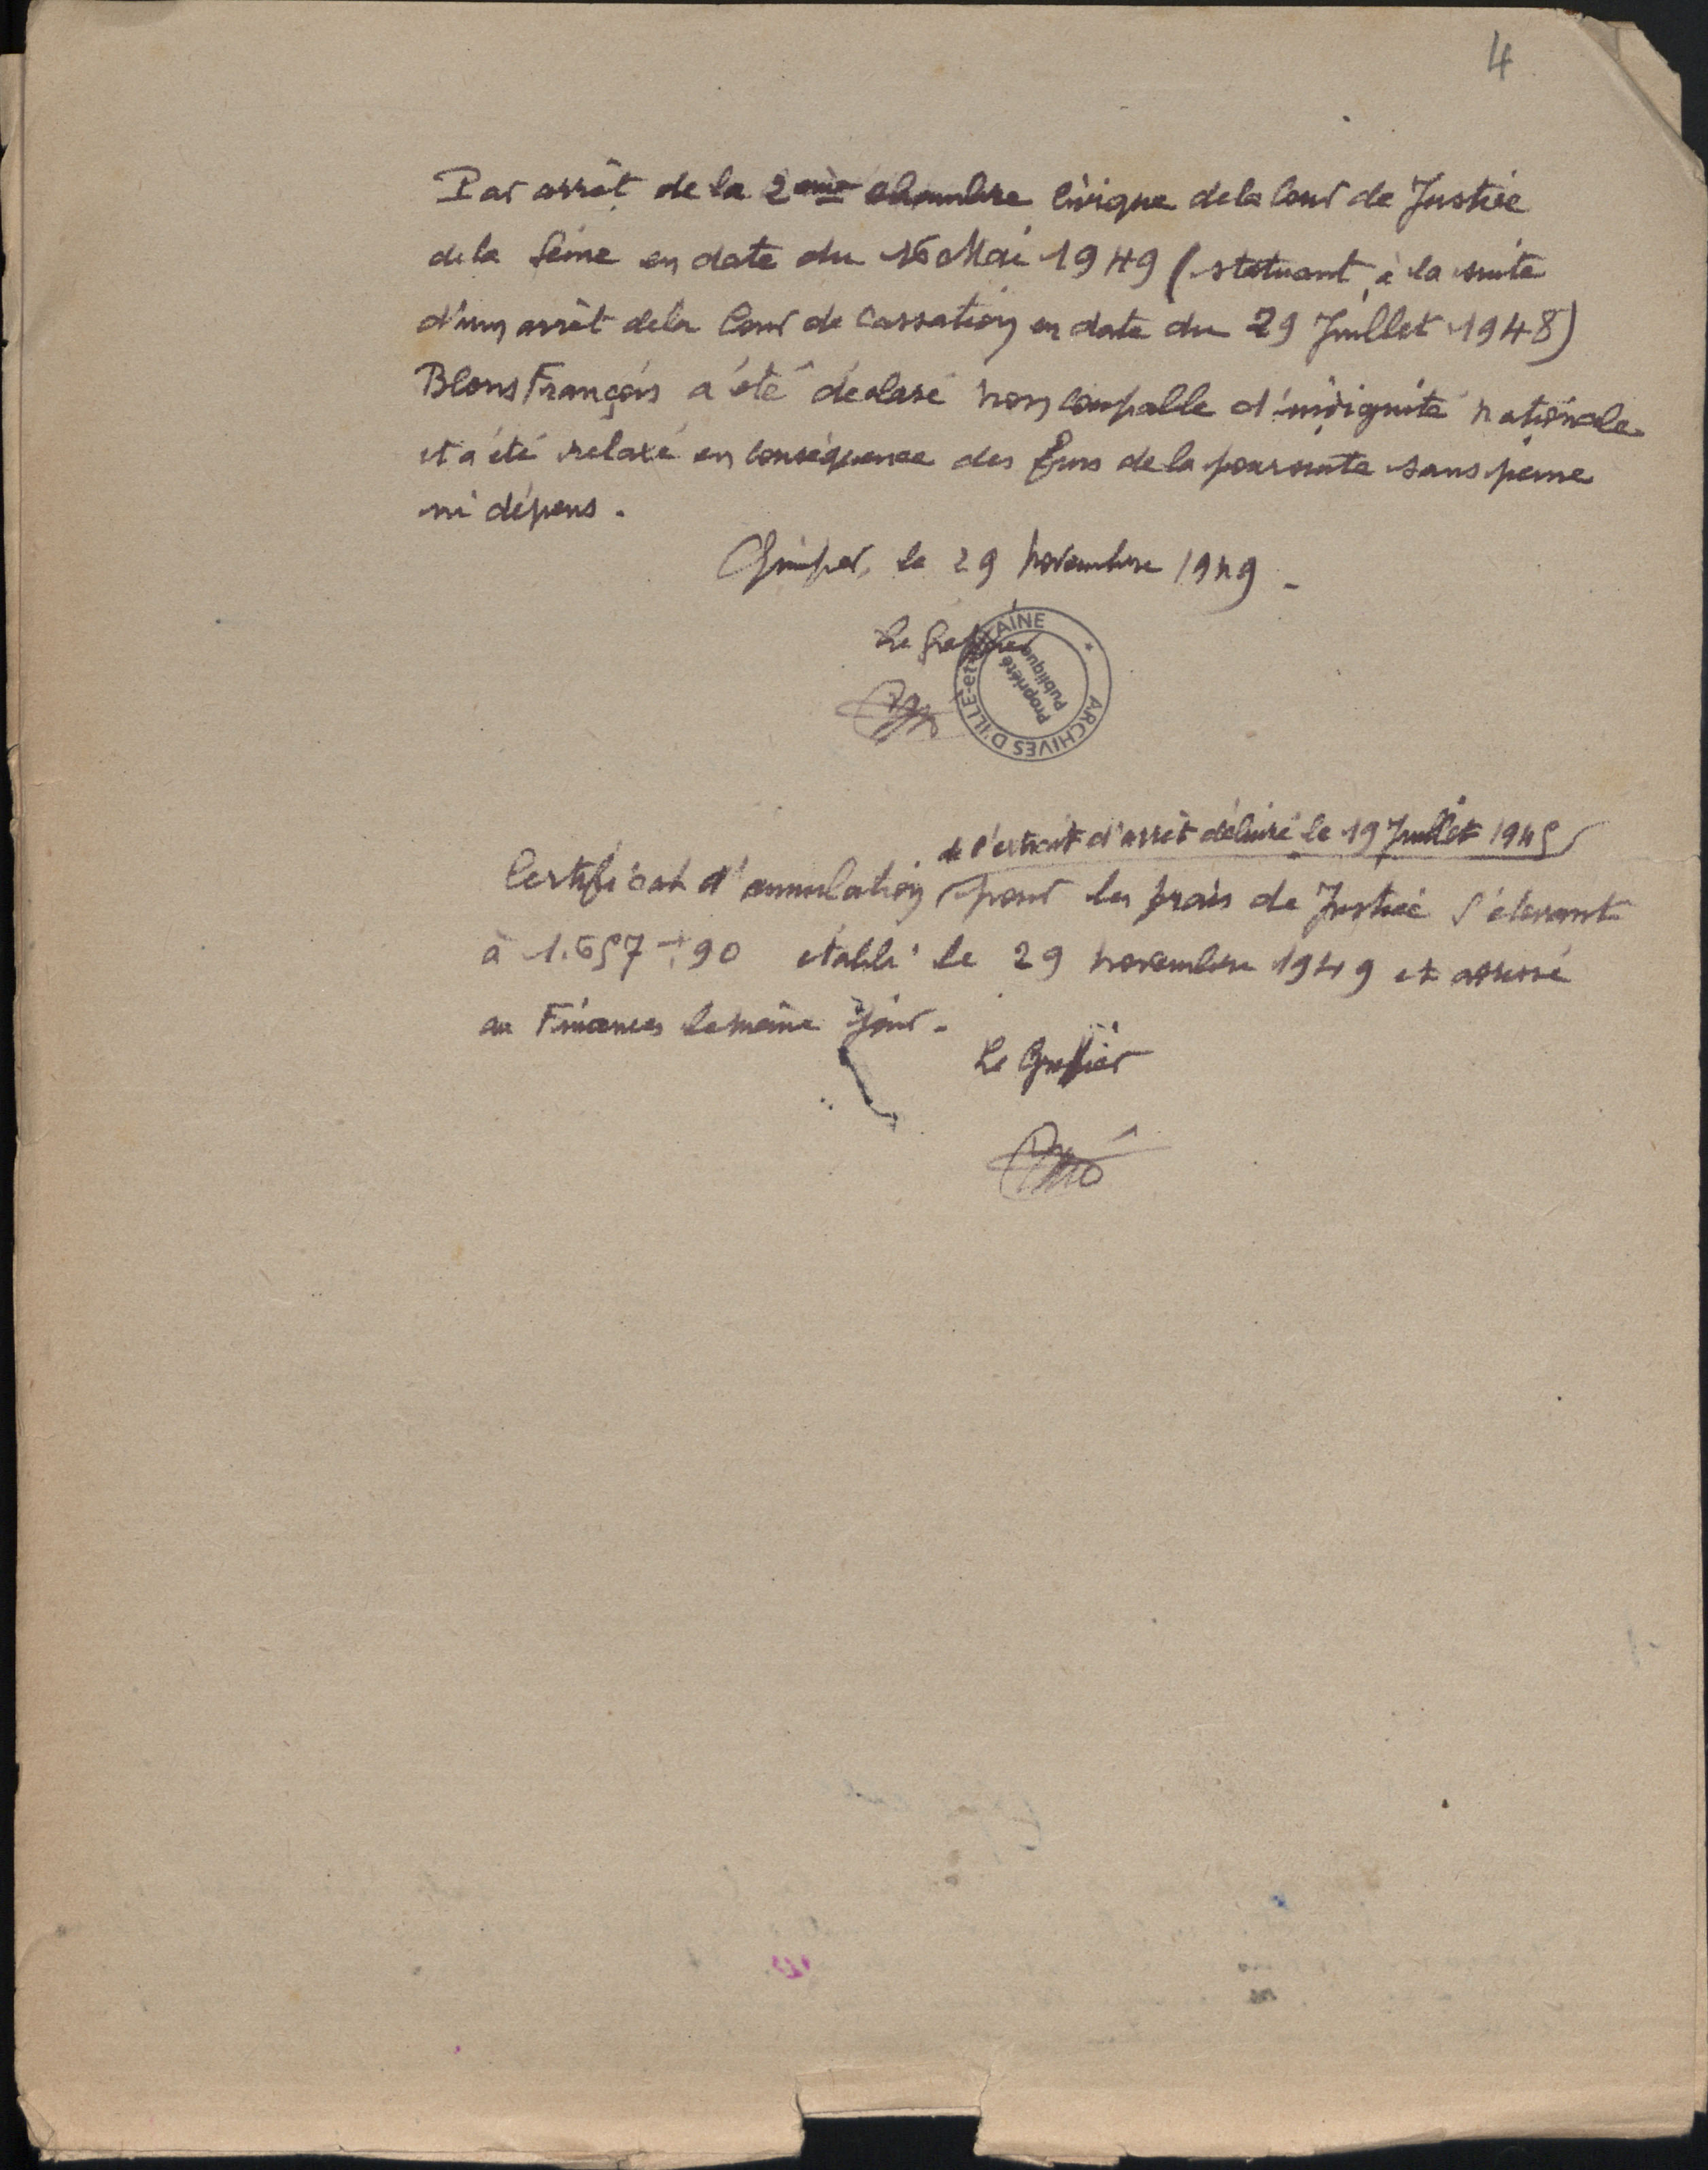 4
Par arrêt de la 2ème chambre Civique de la Cour de Justice
de la Seine en date du 16 Mai 1949 (statuant, à la suite
d'un arrêt de la Cour de Cassation en date du 29 Juillet 1948)
Blons François a été déclaré non coupable d'indignité nationale
et a été relaxé en conséquence des fins de la poursuite sans peine
ni dépens.
Quimper, le 29 novembre 1949 -
Le Greffier
ARCHIVES D'ILLE-et-VILAINE * Propriété Publique
de l'extrait d'arrêt délivré le 19 Juillet 1945
Certificat d'annulation pour les frais de Justice s'élevant
à 1.657 f 90 établi le 29 novembre 1949 et adressé
au Finances le même jour -
Le Greffier